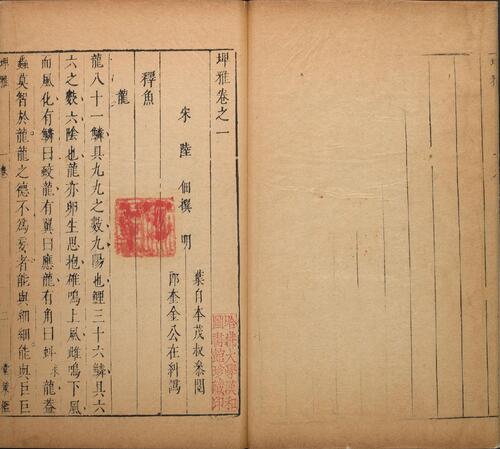 埤雅卷之一
宋 陸 佃 撰 明
葉自本茂叔泰閱
郎奎金公在糾譌
釋魚
龍
龍八十一鱗具九九之數九陽也鯉三十六鱗具六
六之數六陰也龍亦卵生思抱雄鳴上風雌鳴下風
而風化有鱗曰蛟龍有翼曰應龍有角曰虯龍蓋
蟲莫智於龍龍之德不為妄者能與細細能與巨巨
埤雅
卷一
二
堂策檻
哈佛大學漢和
圖書館珍藏印